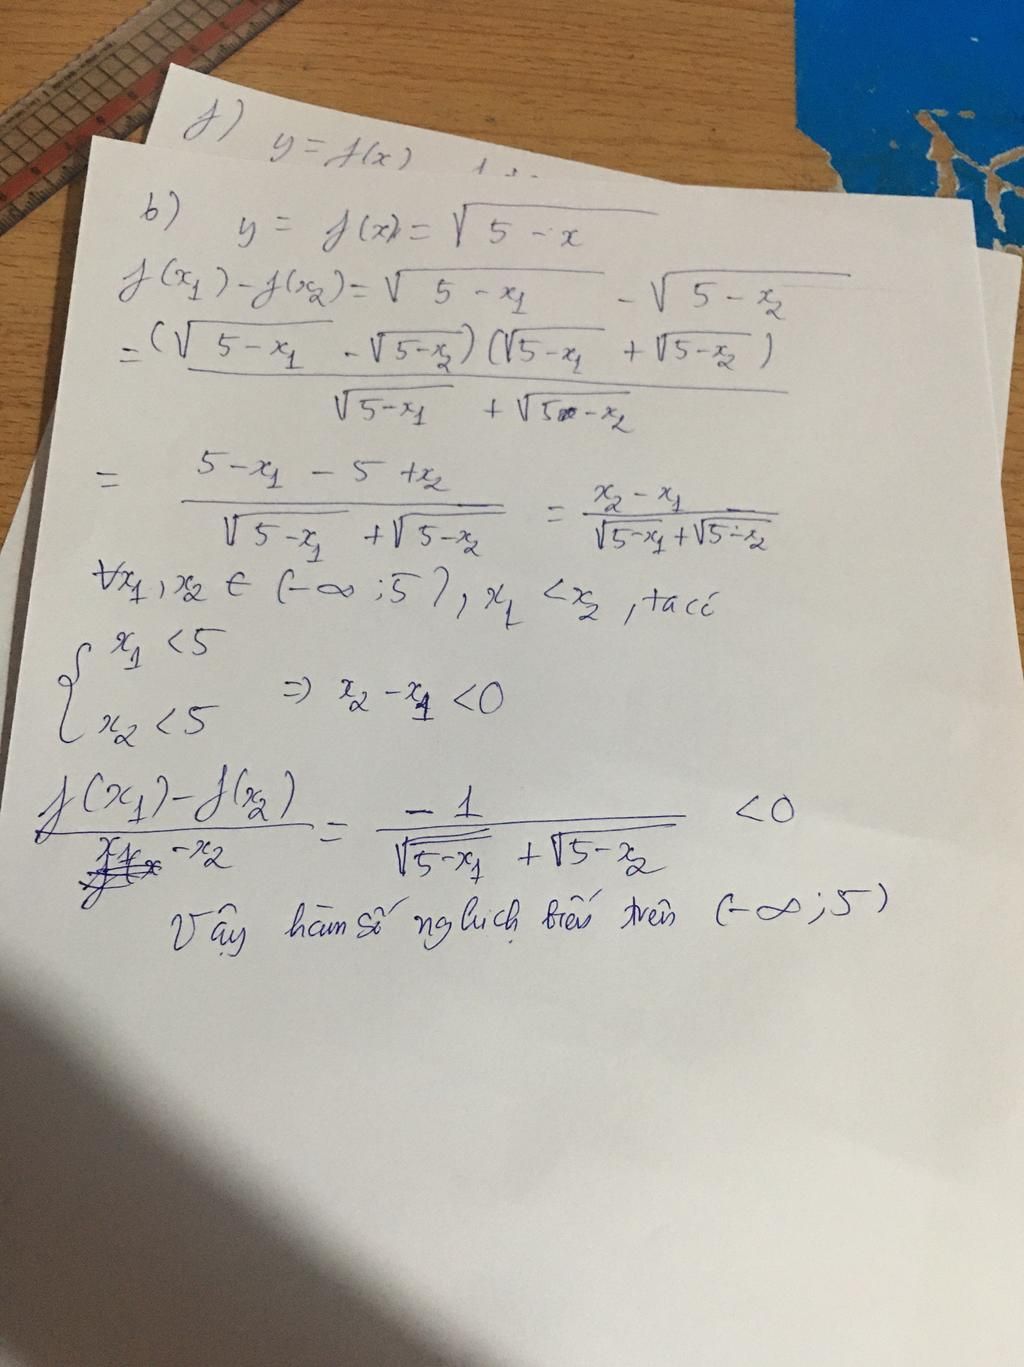 f) y = f(x)
b) y = f(x) = √(5 - x)
f(x₁) - f(x₂) = √(5 - x₁) - √(5 - x₂)
= (√(5-x₁) - √(5-x₂)) (√(5-x₁) + √(5-x₂))
√(5-x₁) + √(5-x₂)
= 5-x₁ - 5 + x₂ / √(5-x₁) + √(5-x₂) = x₂ - x₁ / √(5-x₁) + √(5-x₂)
∀x₁, x₂ ∈ (-∞; 5), x₁ < x₂, ta có
{ x₁ < 5
x₂ < 5 => x₂ - x₁ < 0
f(x₁) - f(x₂) / x₁ - x₂ = -1 / √(5-x₁) + √(5-x₂) < 0
Vậy hàm số nghịch biến trên (-∞; 5)